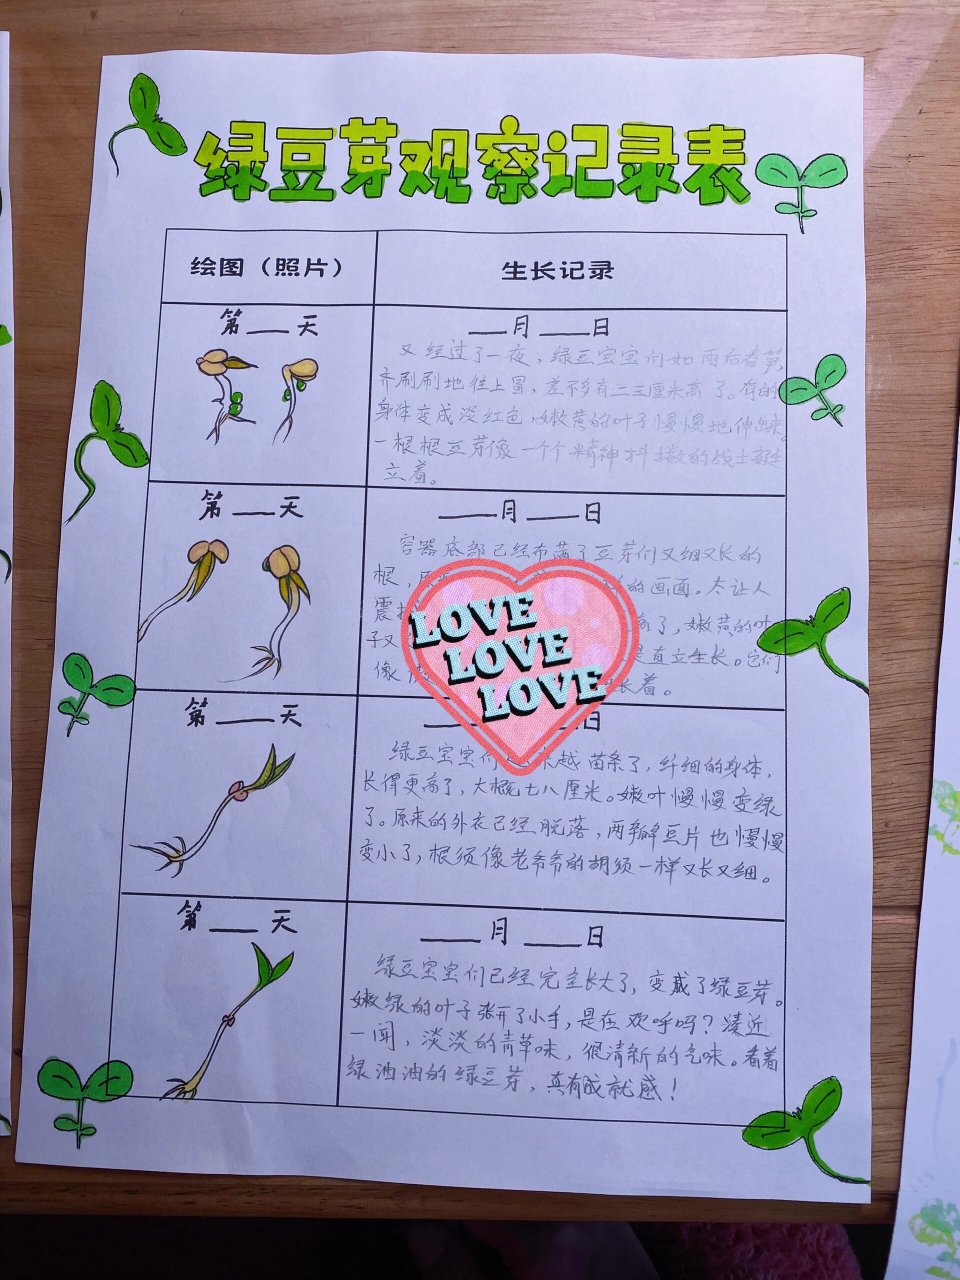 绿豆芽观察记录表
绘图（照片）
生长记录
第___天
___月___日
又经过了一夜，绿豆宝宝们如雨后春笋，
齐刷刷地往上冒，差不多有二三厘米高了。有的
身体变成淡红色，嫩黄的叶子慢慢地伸出来
一根根豆芽像一个个精神抖擞的战士
立着。
第___天
___月___日
容器底部已经布满了豆芽们又细又长的
根，的画面。太让人
震了，嫩黄的叶
子又是直立生长。它们
像长着。
第___天
日
绿豆宝宝们越苗条了，纤细的身体，
长得更高了，大概七八厘米。嫩叶慢慢变绿
了。原来的外衣已经脱落，两瓣豆片也慢慢
变小了，根须像老爷爷的胡须一样又长又细。
第___天
___月___日
绿豆宝宝们已经完全长大了，变成了绿豆芽。
嫩绿的叶子张开了小手，是在欢呼吗？凑近
一闻，淡淡的青草味，很清新的气味。看着
绿油油的绿豆芽，真有成就感！
LOVE
LOVE
LOVE